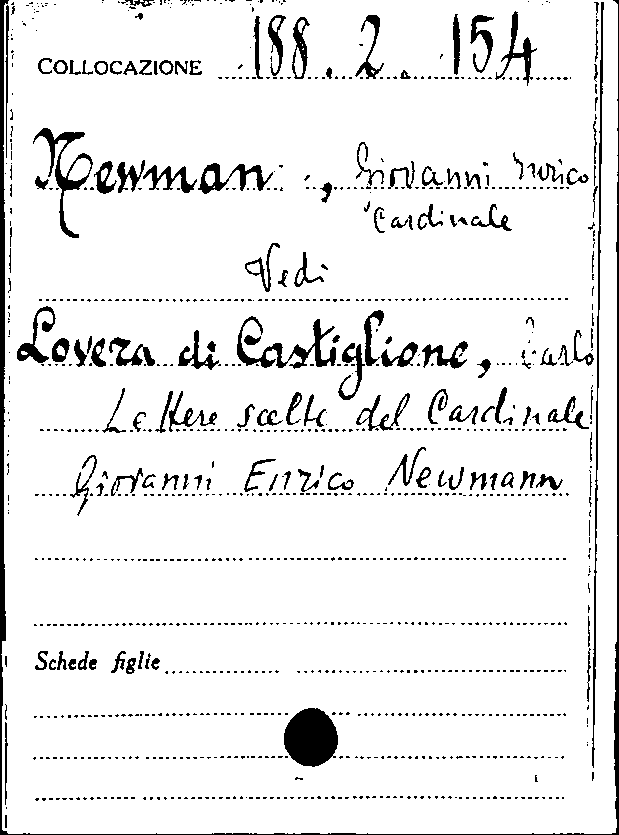 COLLOCAZIONE 188.2.154
Newman, Giovanni Enrico
Cardinale
Vedi
Lovera di Castiglione, Carlo
Lettere scelte del Cardinale
Giovanni Enrico Newmann
Schede figlie